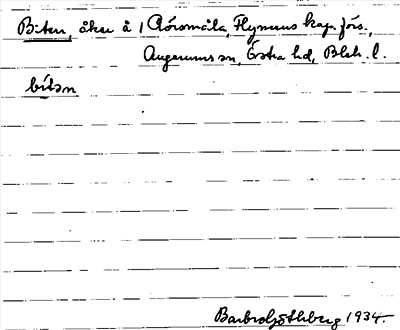 Biten, åker å 1 Rörsmåla, Flymens kap. förs.,
Augerums sn, Östra hd, Blek. l.
bítən
Barbro Götherberg 1934.